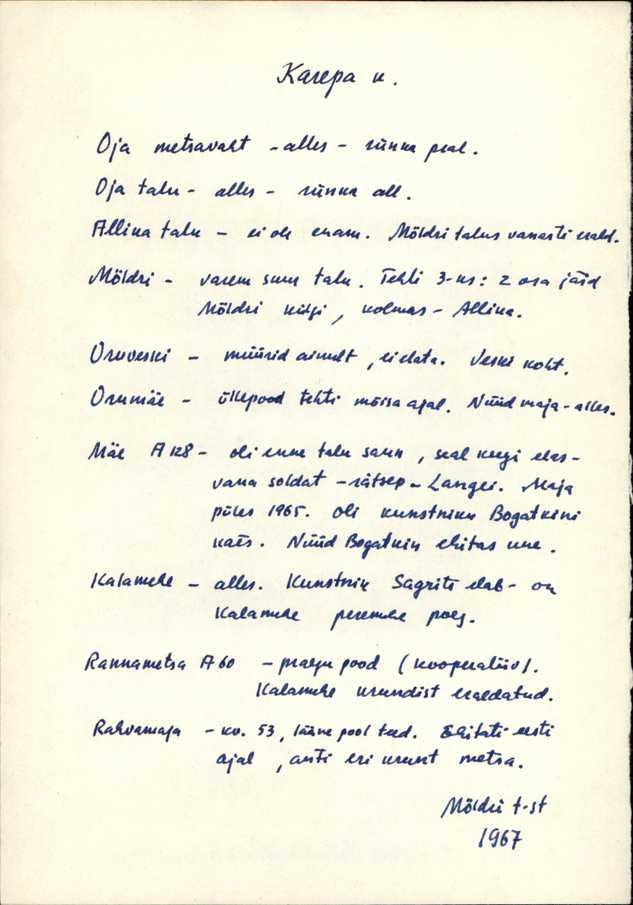 Karepa k.
Oja metsavaht - alles - künka peal.
Oja talu - alles - künka all.
Allika talu - ei ole enam. Möldri talus vanasti erald.
Möldri - varem suur talu. Tehti 3-ks: 2 osa jäid
Möldri külgi, kolmas - Allika.
Oruveski - müürid ainult, ei elata. Veski koht.
Orumäe - ülespood tehti mõisa ajal. Nüüd maja - alles.
Mäe A 128 - oli enne talu saun, seal keegi elas -
vana soldat - rätsep - Langei. Maja
põles 1965. Oli kunstniku Bogatkini
käes. Nüüd Bogatkin ehitas uue.
Kalamehe - alles. Kunstnik Sagrits elab - on
Kalamehe peremehe poeg.
Rannametsa A 60 - praegu pood (kooperatiiv).
Kalamehe krundist eraldatud.
Rahvamaja - kv. 53, lääne pool teed. Ehitati eesti
ajal, anti eri krunt metsa.
Möldri t-st
1967